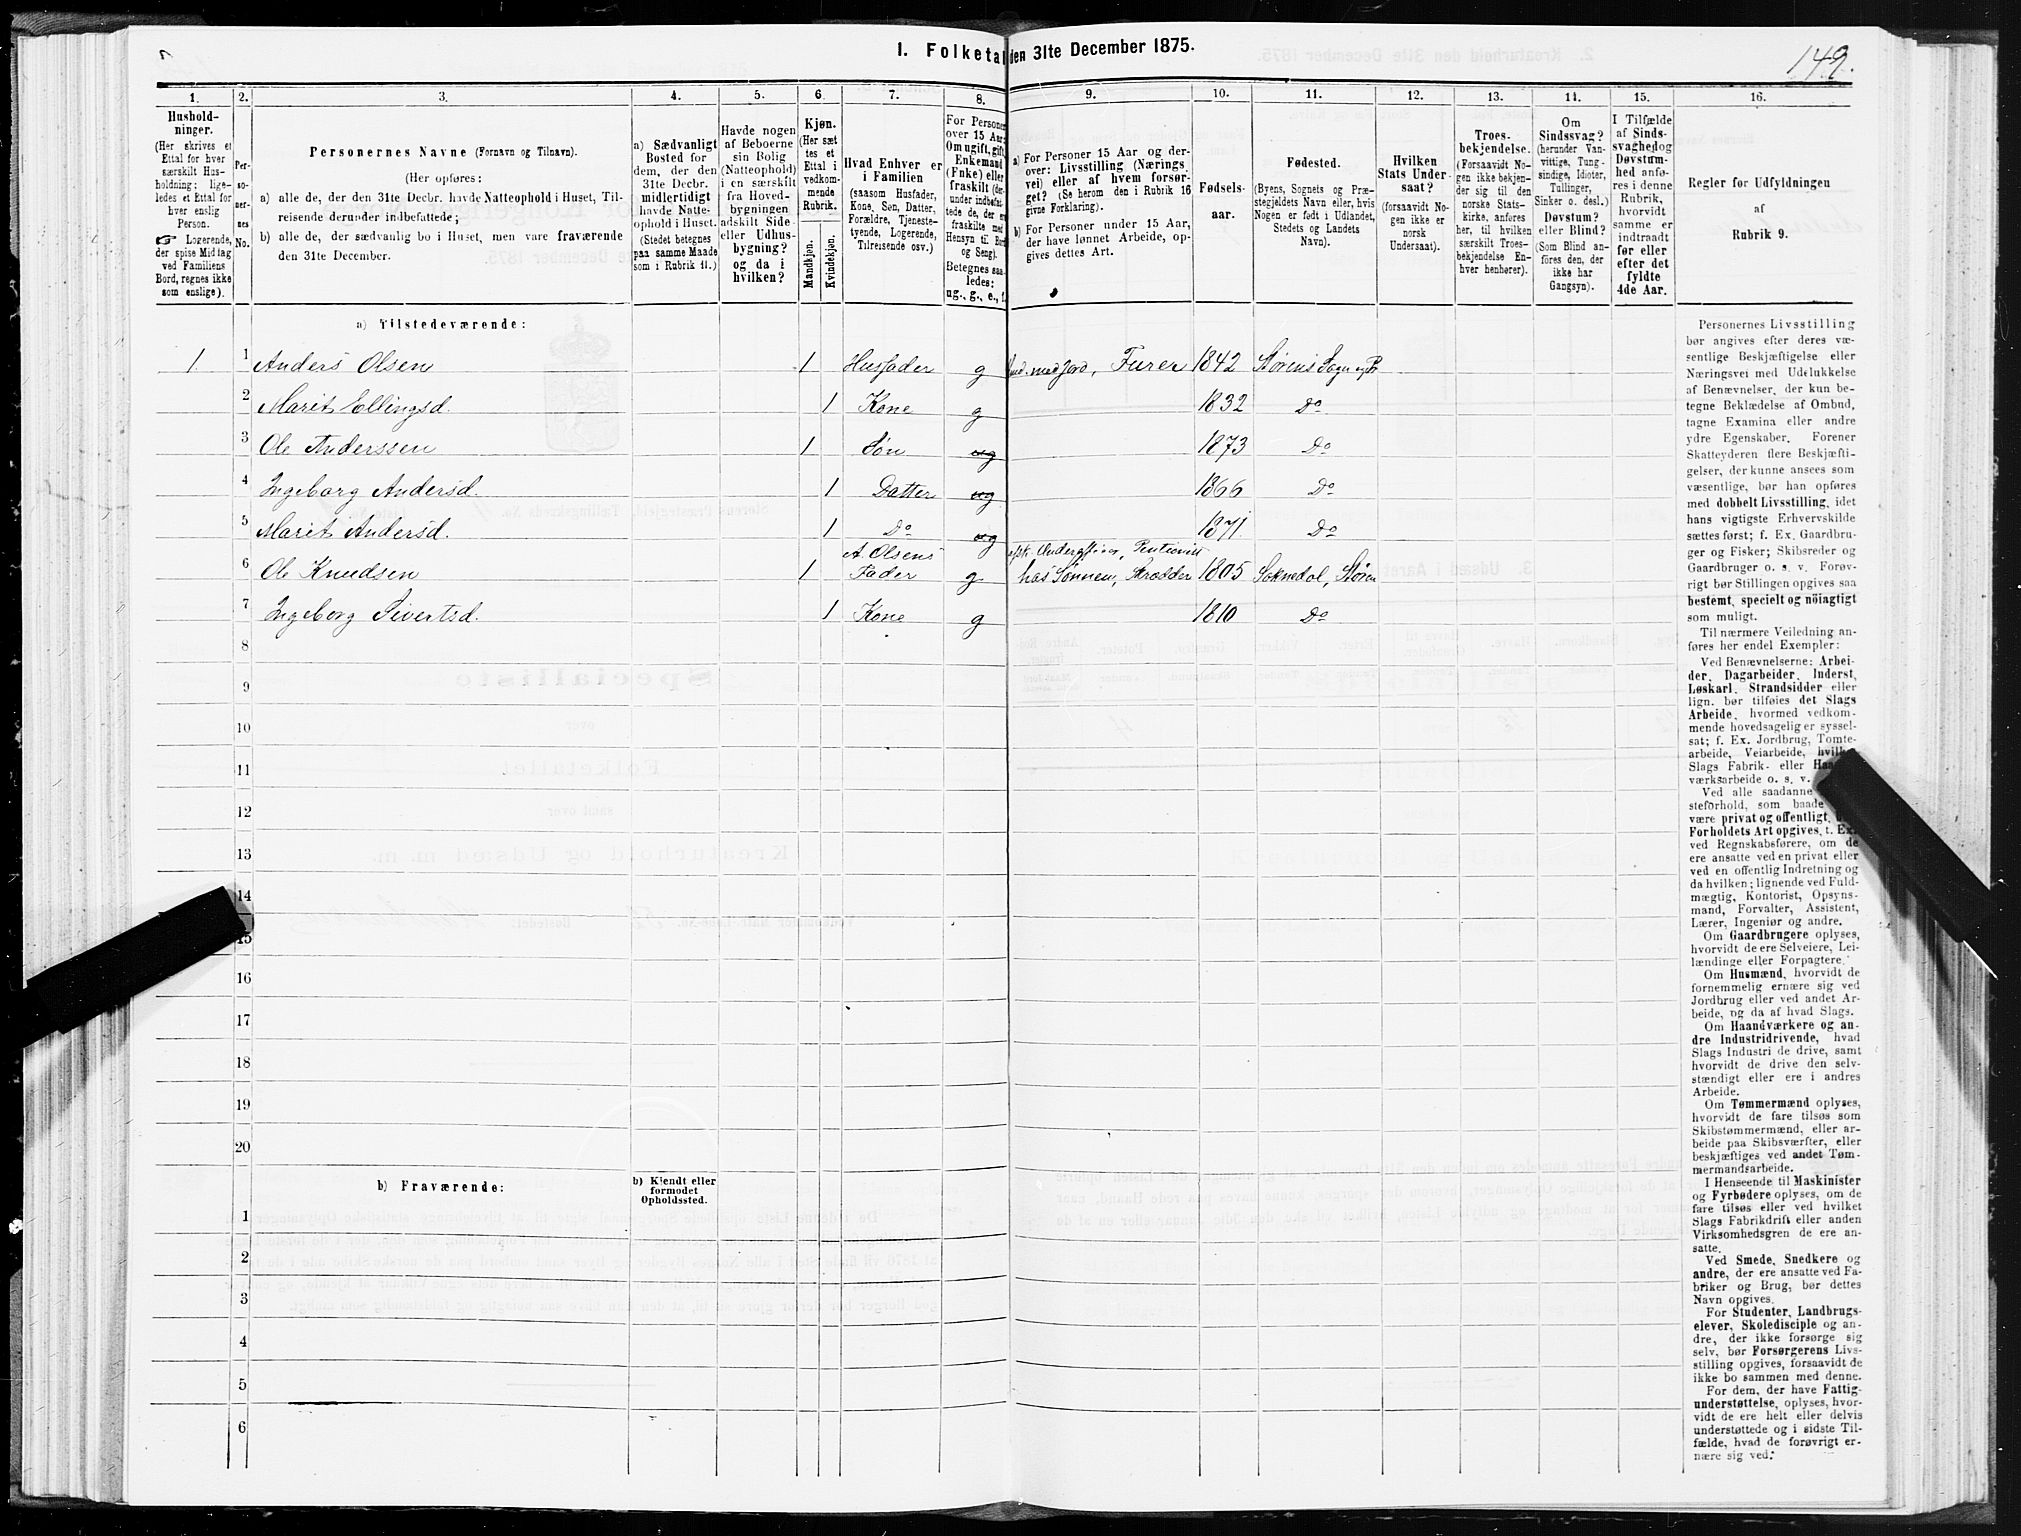 1. Folketal den 31te December 1875.
149.
1.
Hushold-
ninger.
(Her skrives et
Ettal for hver
særskilt Hus-
holdning; lige-
ledes et Ettal for
hver enslig
Person.
☞ Logerende,
der spise Middag
ved Familiens
Bord, regnes ikke
som enslige).
2.
Per-
so-
ner-
nes
No.
3.
Personernes Navne (Fornavn og Tilnavn).
(Her opføres:
a) alle de, der den 31te Decbr. havde Natteophold i Huset, Til-
reisende derunder indbefattede;
b) alle de, der sædvanlig bo i Huset, men vare fraværende
den 31te December.
4.
a) Sædvanligt
Bosted for
dem, der den
31te Decbr.
midlertidigt
havde Natte-
ophold i Huset.
(Stedet betegnes
paa samme Maade
som i Rubrik 11.)
5.
Havde nogen
af Beboerne
sin Bolig
(Natteophold)
i en særskilt
fra Hoved-
bygningen
adskilt Side-
eller Udhus-
bygning?
og da i
hvilken?
6.
Kjøn.
(Her sæt-
tes et
Ettal i
vedkom-
mende
Rubrik.
Mandkjøn.
Kvindekjøn.
7.
Hvad Enhver er
i Familien
(saasom Husfader,
Kone, Søn, Datter,
Forældre, Tjeneste-
tyende, Logerende,
Tilreisende osv.)
8.
For Personer
over 15 Aar:
Om ugift, gift,
Enkemand
(Enke) eller
fraskilt (der-
under indbefat-
tede de, der er
fraskilte med
Hensyn til Bord
og Seng).
Betegnes saa-
ledes:
ug., g., e., f.
9.
a) For Personer 15 Aar og der-
over: Livsstilling (Nærings-
vei) eller af hvem forsør-
get? (Se herom den i Rubrik 16
givne Forklaring).
b) For Personer under 15 Aar,
der have lønnet Arbeide, op-
gives dettes Art.
10.
Fødsels-
aar.
11.
Fødested.
(Byens, Sognets og Præ-
stegjeldets Navn eller, hvis
Nogen er født i Udlandet,
Stedets og Landets
Navn).
12.
Hvilken
Stats Under-
saat?
(forsaavidt No-
gen ikke er
norsk
Undersaat).
13.
Troes-
bekjendelse.
(Forsaavidt No-
gen ikke bekjen-
der sig til den
norske Stats-
kirke, anføres
her, til hvilken
særskilt Troes-
bekjendelse En-
hver henhører).
14.
Om
Sindssvag?
(herunder Van-
vittige, Tung-
sindige, Idioter,
Tullinger,
Sinker o. desl.)
Døvstum?
eller Blind?
(Som Blind an-
føres den, der
ikke har
Gangsyn).
15.
I Tilfælde
af Sinds-
svaghed og
Døvstum-
hed anfø-
res i denne
Rubrik,
hvorvidt
samme er
indtraadt
før eller
efter det
fyldte
4de Aar.
16.
Regler for Udfyldningen
af
Rubrik 9.
a) Tilstedeværende:
1 1 Anders Olsen 1 Husfader g med jord, Furer 1842 Størens Sogn og P
2 Marit Ellingsd. 1 Kone g 1832 Do
3 Ole Anderssen 1 Søn ug 1873 Do
4 Ingeborg Andersd. 1 Datter ug 1866 Do
5 Marit Andersd. 1 Do ug 1871 Do
A. Olsens
6 Ole Knudsen 1 Fader g hos Sønnen, Skrædder 1805 Soknedal, Støren
7 Ingeborg Sivertsd. 1 Kone g 1810 Do
8
9
10
11
12
13
14
15
16
17
18
19
20
b) Fraværende:
b) Kjendt eller
formodet
Opholdssted.
1
2
3
4
5
6
Personernes Livsstilling
bør angives efter deres væ-
sentlige Beskjæftigelse eller
Næringsvei med Udelukkelse
af Benævnelser, der kun be-
tegne Beklædelse af Ombud,
tagne Examina eller andre
ydre Egenskaber. Forener
Skatteyderen flere Beskjæfti-
gelser, der kunne ansees som
væsentlige, bør han opføres
med dobbelt Livsstilling, idet
hans vigtigste Erhvervskilde
sættes først; f. Ex. Gaardbru-
ger og Fisker; Skibsreder og
Gaardbruger o. s. v. Forøv-
rigt bør Stillingen opgives saa
bestemt, specielt og nöiagtigt
som muligt.
Til nærmere Veiledning an-
føres her endel Exempler:
Ved Benævnelserne: Arbei-
der, Dagarbeider, Inderst,
Løskarl, Strandsidder eller
lign. bør tilføies det Slags
Arbeide, hvormed vedkom-
mende hovedsagelig er syssel-
sat; f. Ex. Jordbrug, Tomte-
arbeide, Veiarbeide, hvilket
Slags Fabrik- eller Haand-
værksarbeide o. s. v.
Ved alle saadanne
steforhold, som baade
være privat og offentligt,
Forholdets Art opgives, t. Ex.
ved Regnskabsførere, om de
ere ansatte ved en privat eller
ved en offentlig Indretning og
da hvilken; lignende ved Fuld-
mægtig, Kontorist, Opsyns-
mand, Forvalter, Assistent,
Lærer, Ingeniør og andre.
Om Gaardbrugere oplyses,
hvorvidt de ere Selveiere, Lei-
lændinge eller Forpagtere.
Om Husmænd, hvorvidt de
fornemmelig ernære sig ved
Jordbrug eller ved andet Ar-
beide, og da af hvad Slags.
Om Haandværkere og an-
dre Industridrivende, hvad
Slags Industri de drive, samt
hvorvidt de drive den selv-
stændigt eller ere i andres
Arbeide.
Om Tømmermænd oplyses,
hvorvidt de fare tilsøs som
Skibstømmermænd, eller ar-
beide paa Skibsværfter, eller
beskjæftiges ved andet Tøm-
mermandsarbeide.
I Henseende til Maskinister
og Fyrbødere oplyses, om de
fare tilsøs eller ved hvilket
Slags Fabrikdrift eller anden
Virksomhedsgren de ere an-
satte.
Ved Smede, Snedkere og
andre, der ere ansatte ved Fa-
briker og Brug, bør dettes
Navn opgives.
For Studenter, Landbrugs-
elever, Skoledisciple og an-
dre, der ikke forsørge sig
selv, bør Forsørgerens Livs-
stilling opgives, forsaavidt de
ikke bo sammen med denne.
For dem, der have Fattig-
understøttelse, oplyses, hvor-
vidt de ere helt eller delvis
understøttede og i sidste Til-
fælde, hvad de forøvrigt er-
nære sig ved.